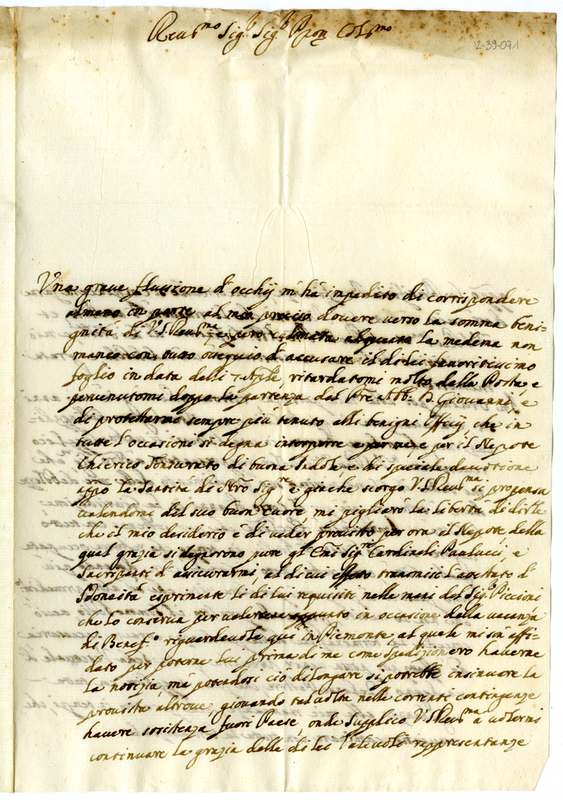 Reu.mo Sig.r Sig.r Pron Col.mo
2-39-071
Una graue flussione d'occhij m'ha impedito di corrispondere
almeno in parte al mio preciso douere verso la somma beni-
gnità di V.S. Reu.ma e però la medema non
manco con tutto ossequio d'accusare il di lei fauoritissimo
foglio in data delli ritardatomi molto dalla Posta, e
peruenutomi doppo la partenza del Pre Giouanni, e
di protestarmi sempre più tenuto alli benigni effetti, che in
tutte l'occasioni si degna interporre e per me, e per il Nepote
Chierico Tonsurato di buona Indole e di speciale deuotione
la Santità di N'ro Sig.re e giache scorgo V.S. Reu.ma si propensa
del suo buon Cuore mi piglierò la libertà di dirle
che il mio desiderio è di veder prouisto per ora il Nepote della
qual grazia si degnorno pure gl'Em.i Sig.ri Cardinali Paulucci, e
Sacripanti d'assicurarmi, al di cui effetto transmisi l'attestato d'
Idoneità esprimente li di lui requisiti nelle mani del Sig.r Piccioni
che lo conserua per valersene in occasione della vacanza
di Benef.o riguardeuole quì in Piemonte, al quale mi son affi-
dato per poterne lui prima di me come Spedizionero hauerne
la notizia, ma potendosi ciò dilongare si potrebbe insinuare la
prouista altroue, giouando tal volta nelle correnti contingenze
hauere sussistenza fuori Paese, onde supplico V.S. Reu.ma a volermi
continuare la grazia delle di lei valeuoli rappresentanze